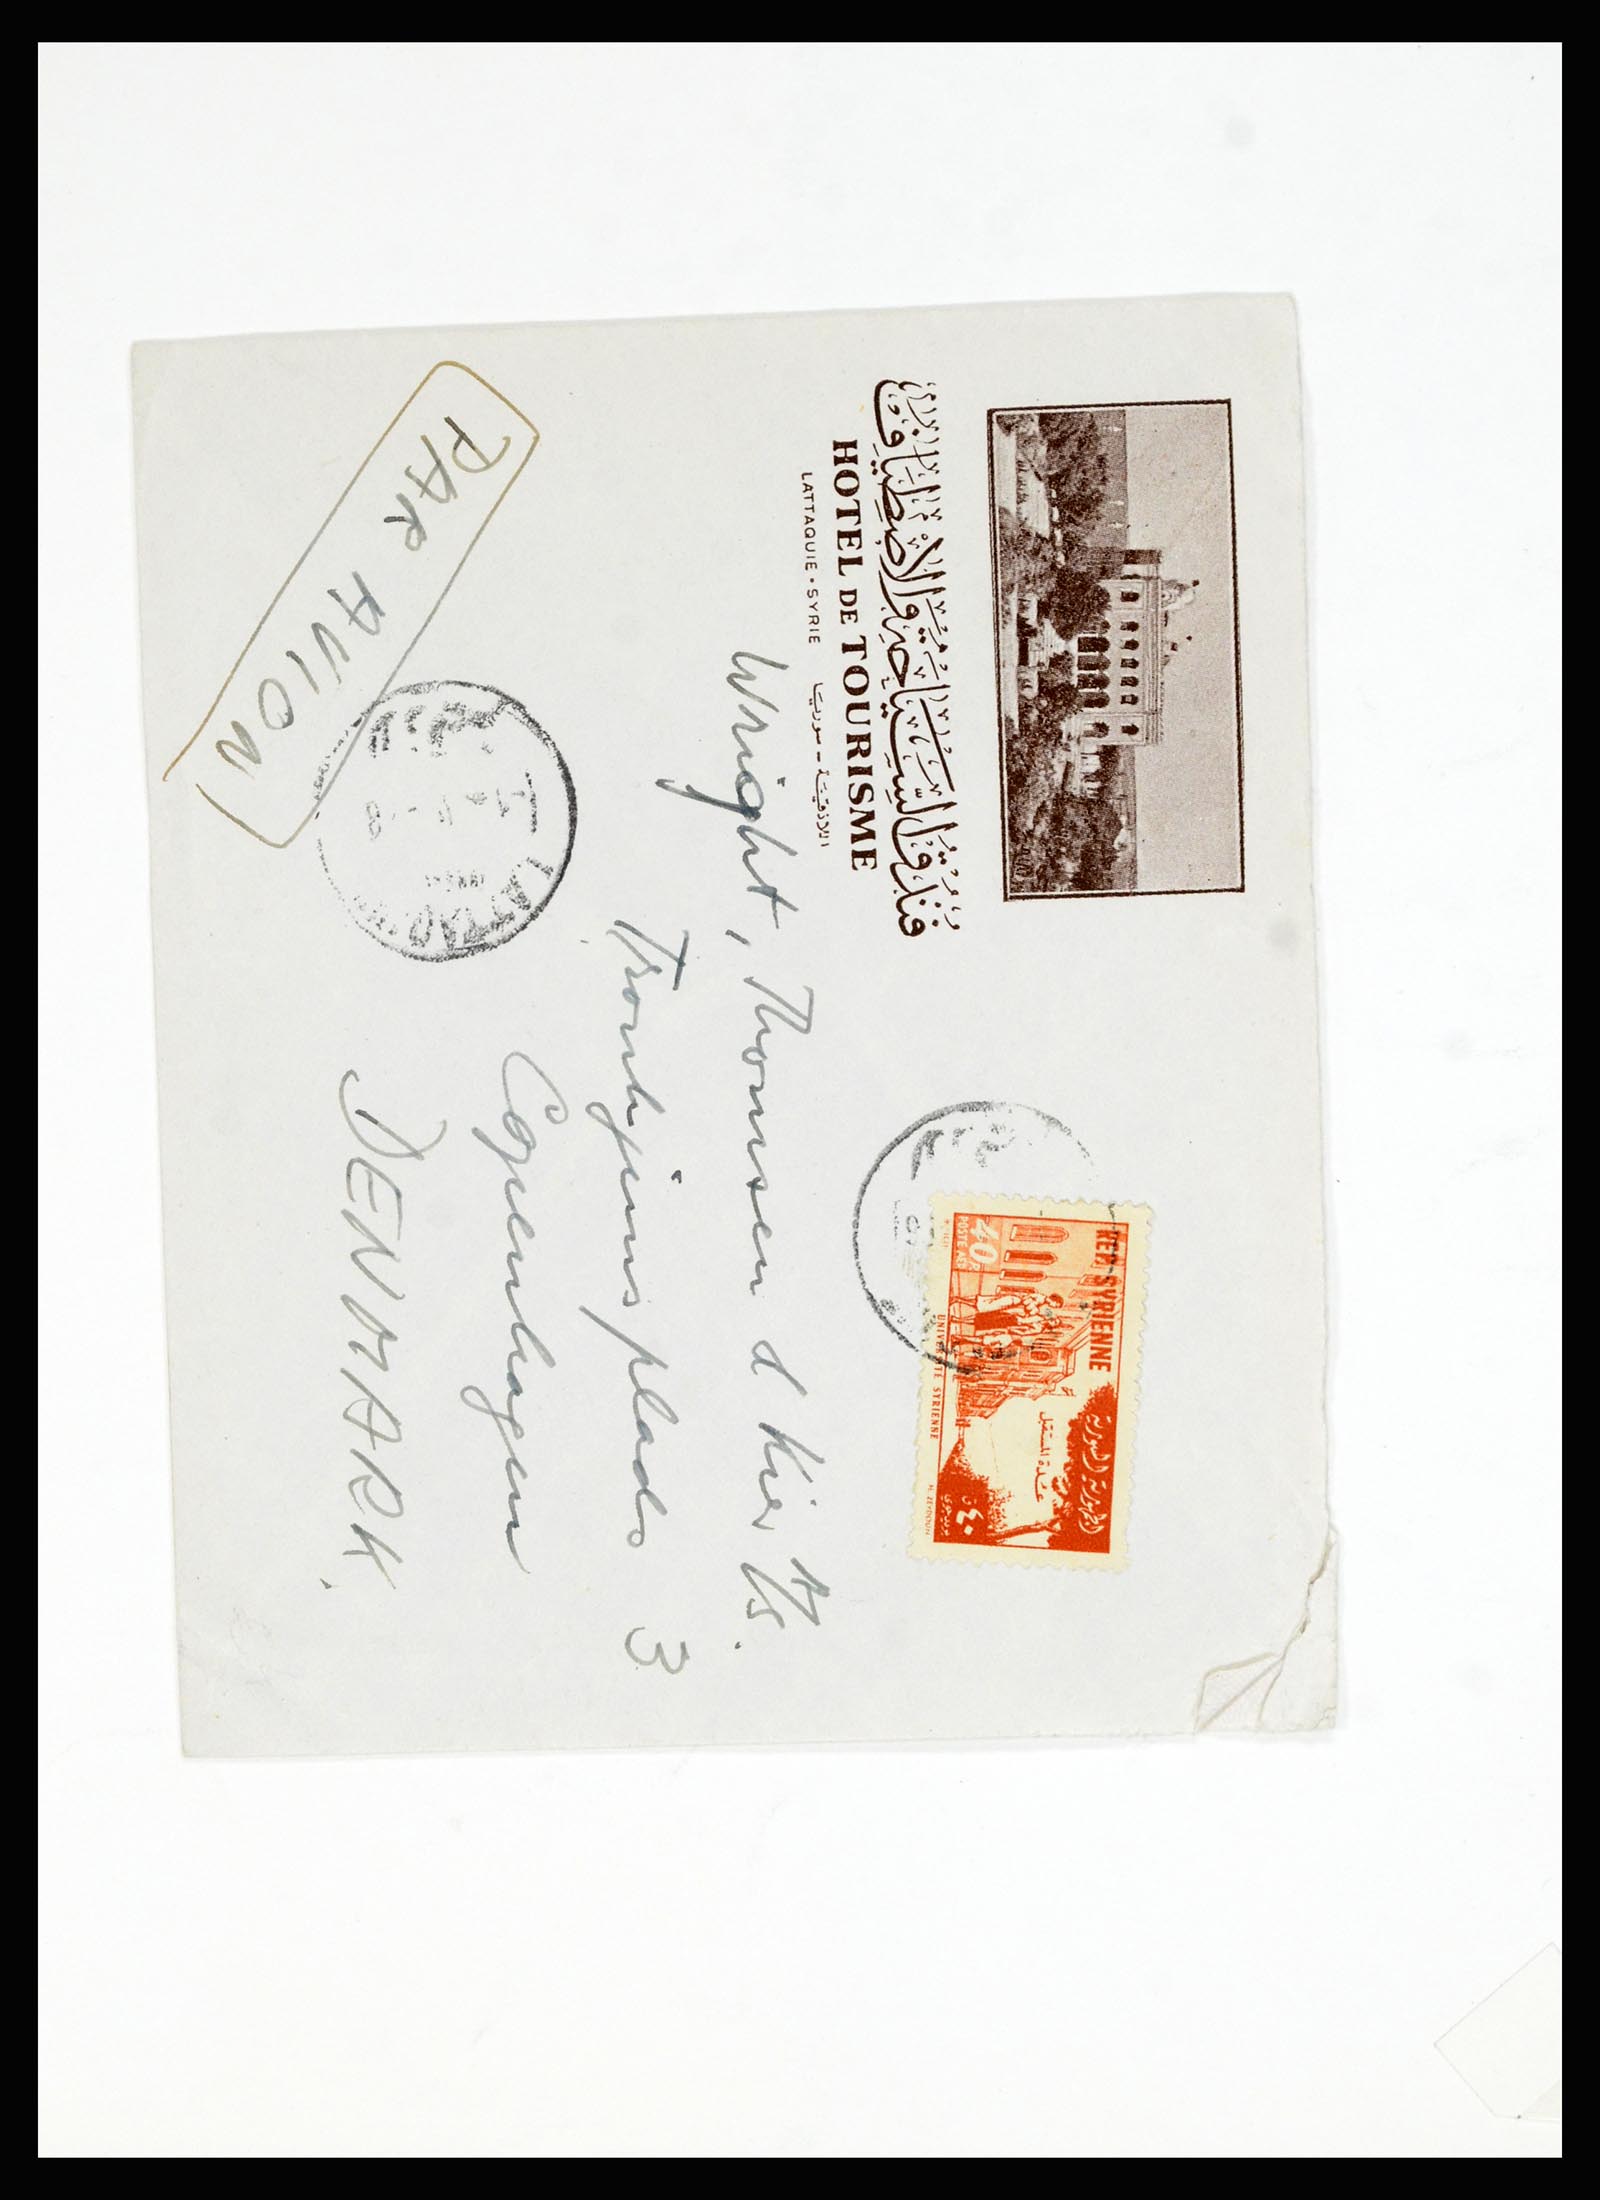 فندق السياحة والاصطياف
HOTEL DE TOURISME
LATTAQUIE • SYRIE اللاذقية - سوريا
REP. SYRIENNE الجمهورية السورية
عدة المستقبل
40 P
POSTE AERIENNE
٤٠ ق
UNIVERSITE SYRIENNE
H. ZEYDOUN
Wright, Thomsen & Kier A/s.
Trondhjems plads 3
Copenhagen
DENMARK.
PAR AVION